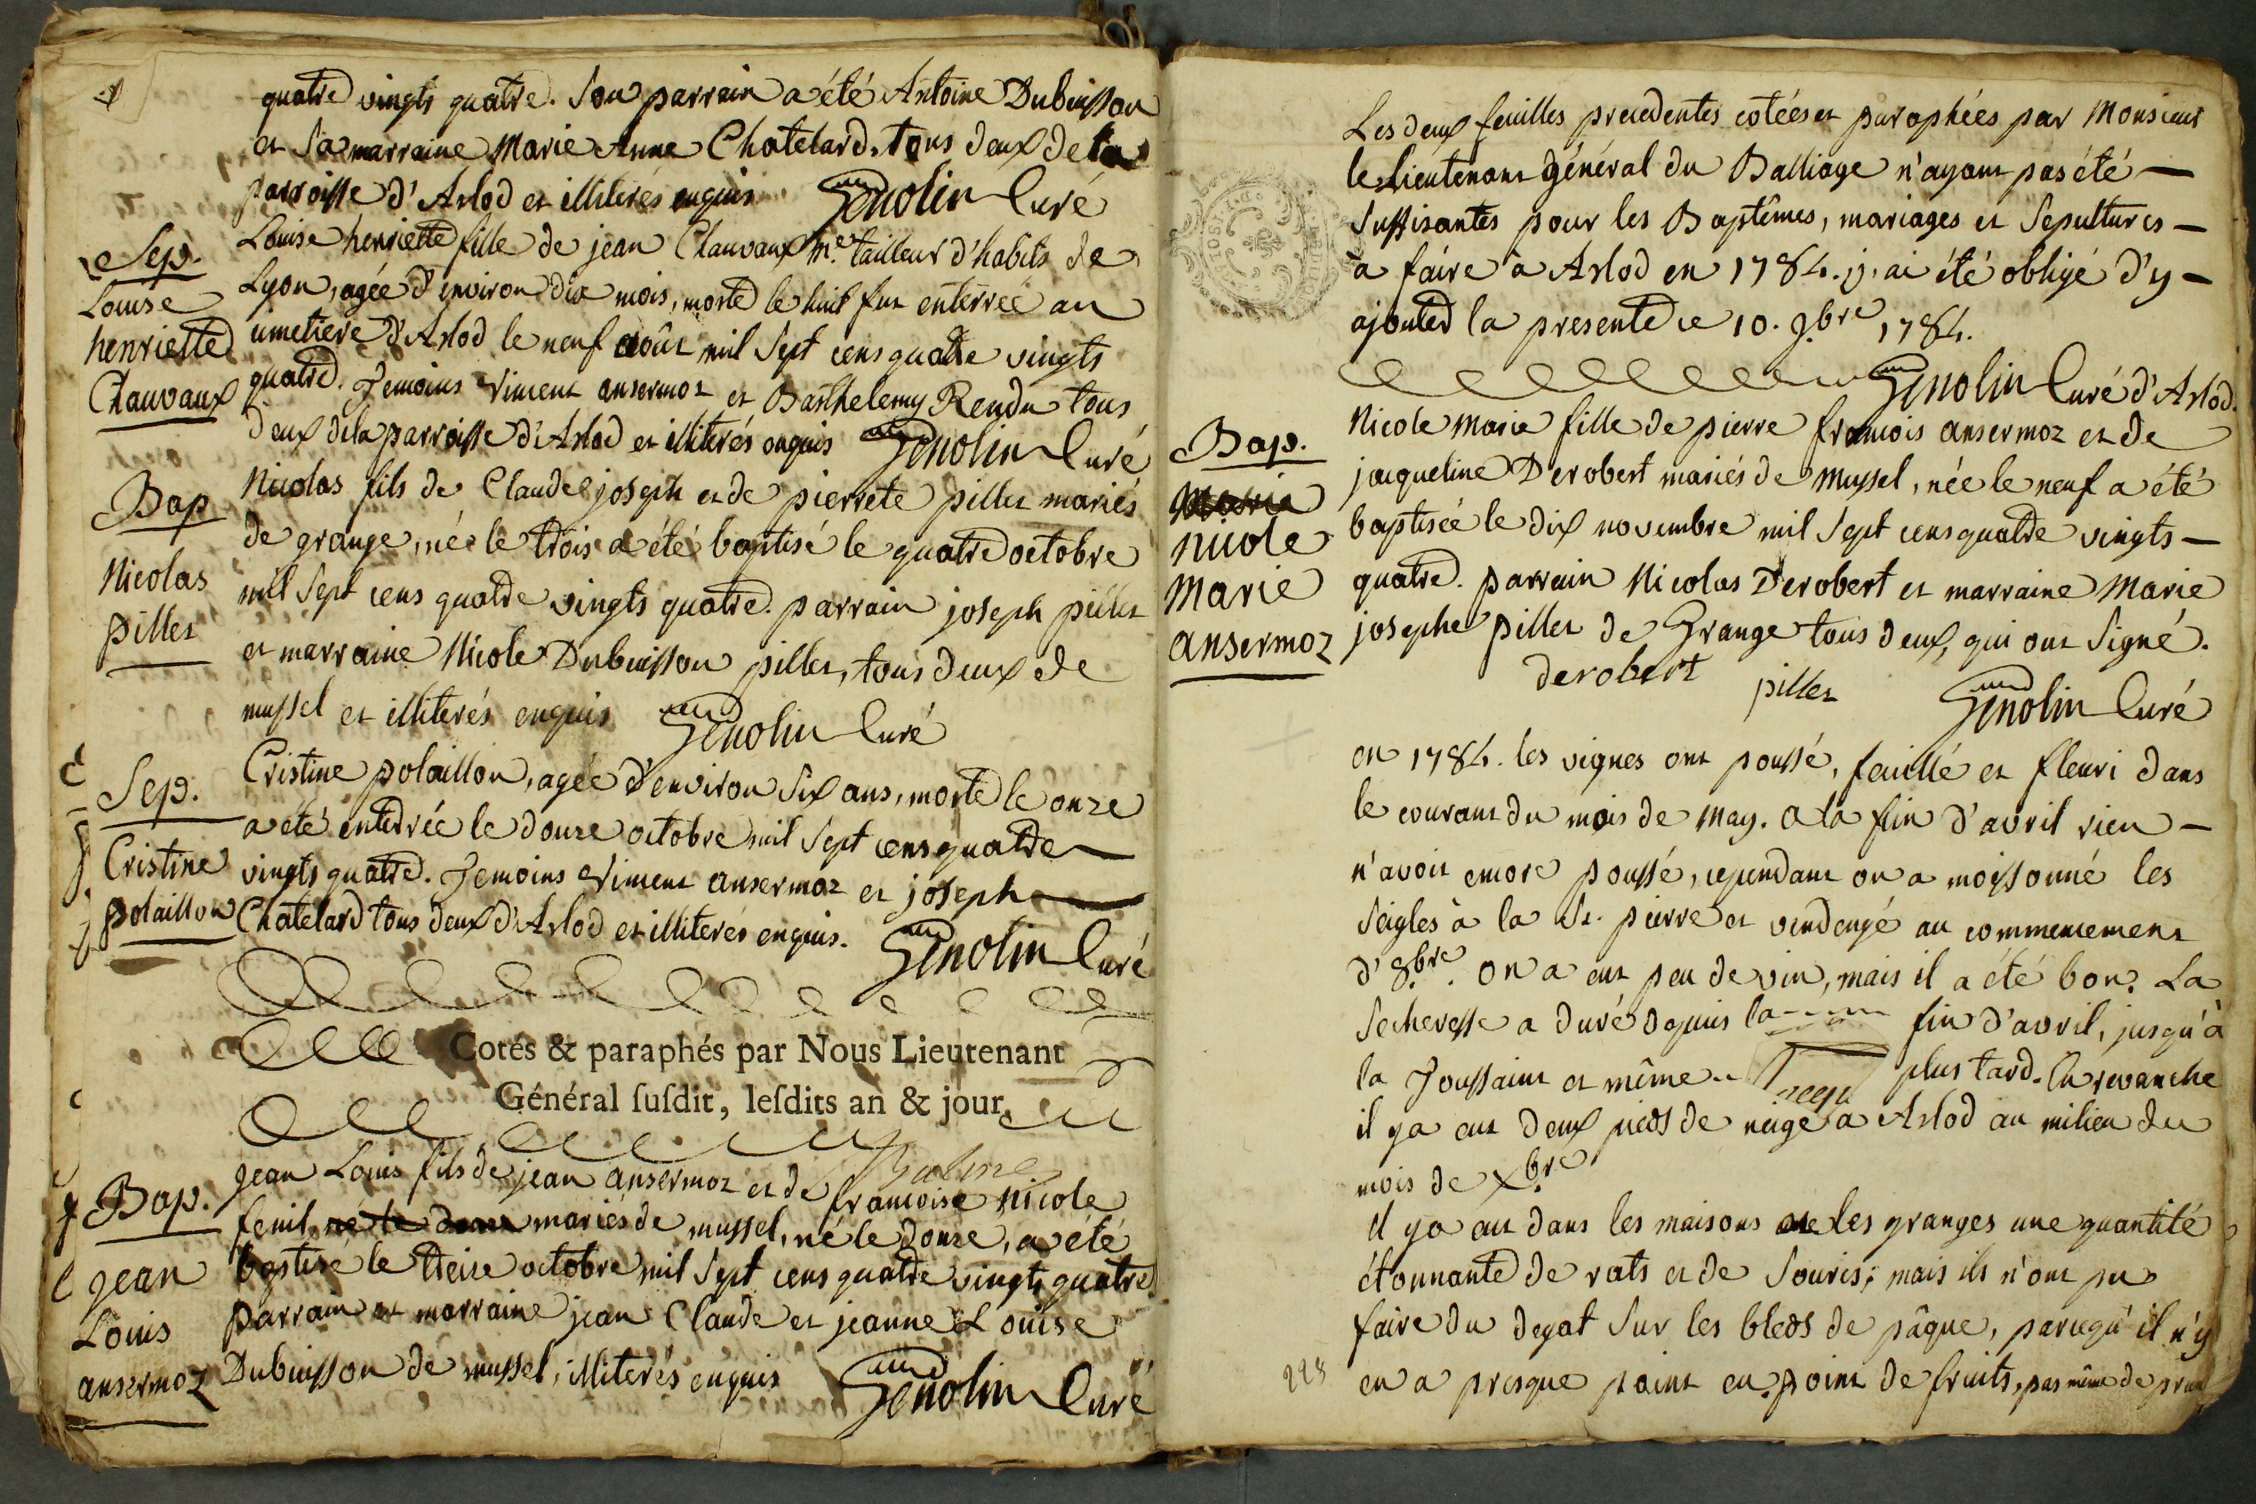 quatre vingts quatre. Son parrain a été Antoine Dubuisson
et sa marraine Marie Anne Chatelard, tous deux de la
parroisse d'Arlod et illiterés enquis Genolin Curé
Sep.
Louise
henriette
Chauvaux
Louise henriette fille de jean Clauvaux me. tailleur d'habits de
Lyon, agée d'environ dix mois, morte le huit fut enterrée au
cimetiere d'Arlod le neuf août mil Sept cens quatre vingts
quatre. Temoins Viment ansermoz et Barthelemy Rendu tous
deux dela parroisse d'Arlod et illiterés enquis Genolin Curé
Bap
Nicolas
pillet
Nicolas fils de Claude joseph et de pierrete pillet mariés
de grange, né le trois a été baptisé le quatre octobre
mil Sept cens quatre vingts quatre. parrain joseph pillet
et marraine Nicole Dubuisson pillet, tous deux de
mussel et illiterés enquis Genolin Curé
Sep.
Cristine
polaillon
Cristine polaillon, agée d'environ Six ans, morte le onze
a été enterrée le douze octobre mil Sept cens quatre
vingts quatre. Temoins Viment ansermoz et joseph
Chatelard tous deux d'Arlod et illiterés enquis. Genolin Curé
Cotés & paraphés par Nous Lieutenant
Général ſuſdit, leſdits an & jour.
Bap.
jean
Louis
ansermoz
jean Louis fils de jean ansermoz et de francoise Nicole
feuil né le douze mariés de mussel, né le douze, a été
baptisé le treize octobre mil Sept cens quatre vingts quatre
parrain et marraine jean Claude et jeanne Louise
Dubuisson de mussel, illiterés enquis Genolin Curé
Les deux feuilles precedentes cotées et parophées par Monsieur
le Lieutenant général du Balliage n'ayant pas été —
Suffisantes pour les Baptêmes, mariages et Sepultures —
à faire à Arlod en 1784. j'ai été obligé d'y —
ajouter la presente ce 10. 9.bre 1784.
Genolin Curé d'Arlod.
Bap.
Marie
nicole
Marie
ansermoz
Nicole Marie fille de pierre francois ansermoz et de
jacqueline Derobert mariés de Mussel, née le neuf a été
baptisée le dix novembre mil Sept cens quatre vingts —
quatre. parrain Nicolas Derobert et marraine Marie
josephe pillet de Grange tous deux, qui ont Signé.
derobert pillet Genolin Curé
en 1784. les vignes ont poussé, feuillé et fleuri dans
le courant du mois de May. a la fin d'avril rien —
n'avoit encore poussé, cependant on a moissonné les
Seigles à la St. pierre et vendengé au commencement
d'8.bre. on a eut peu de vin, mais il a été bon. La
Secheresse a duré depuis la fin d'avril, jusqu'à
la Toussaint et même plus tard. En revanche
il ya eut deux pieds de neige a Arlod au milieu du
mois de Xbre.
il ya eut dans les maisons et les granges une quantité
étonnante de rats et de Souris; mais ils n'ont pu
faire du degat Sur les bleds de pâque, parcequ'il n'y
en a presque point eu. point de fruits, pas même de prun
293